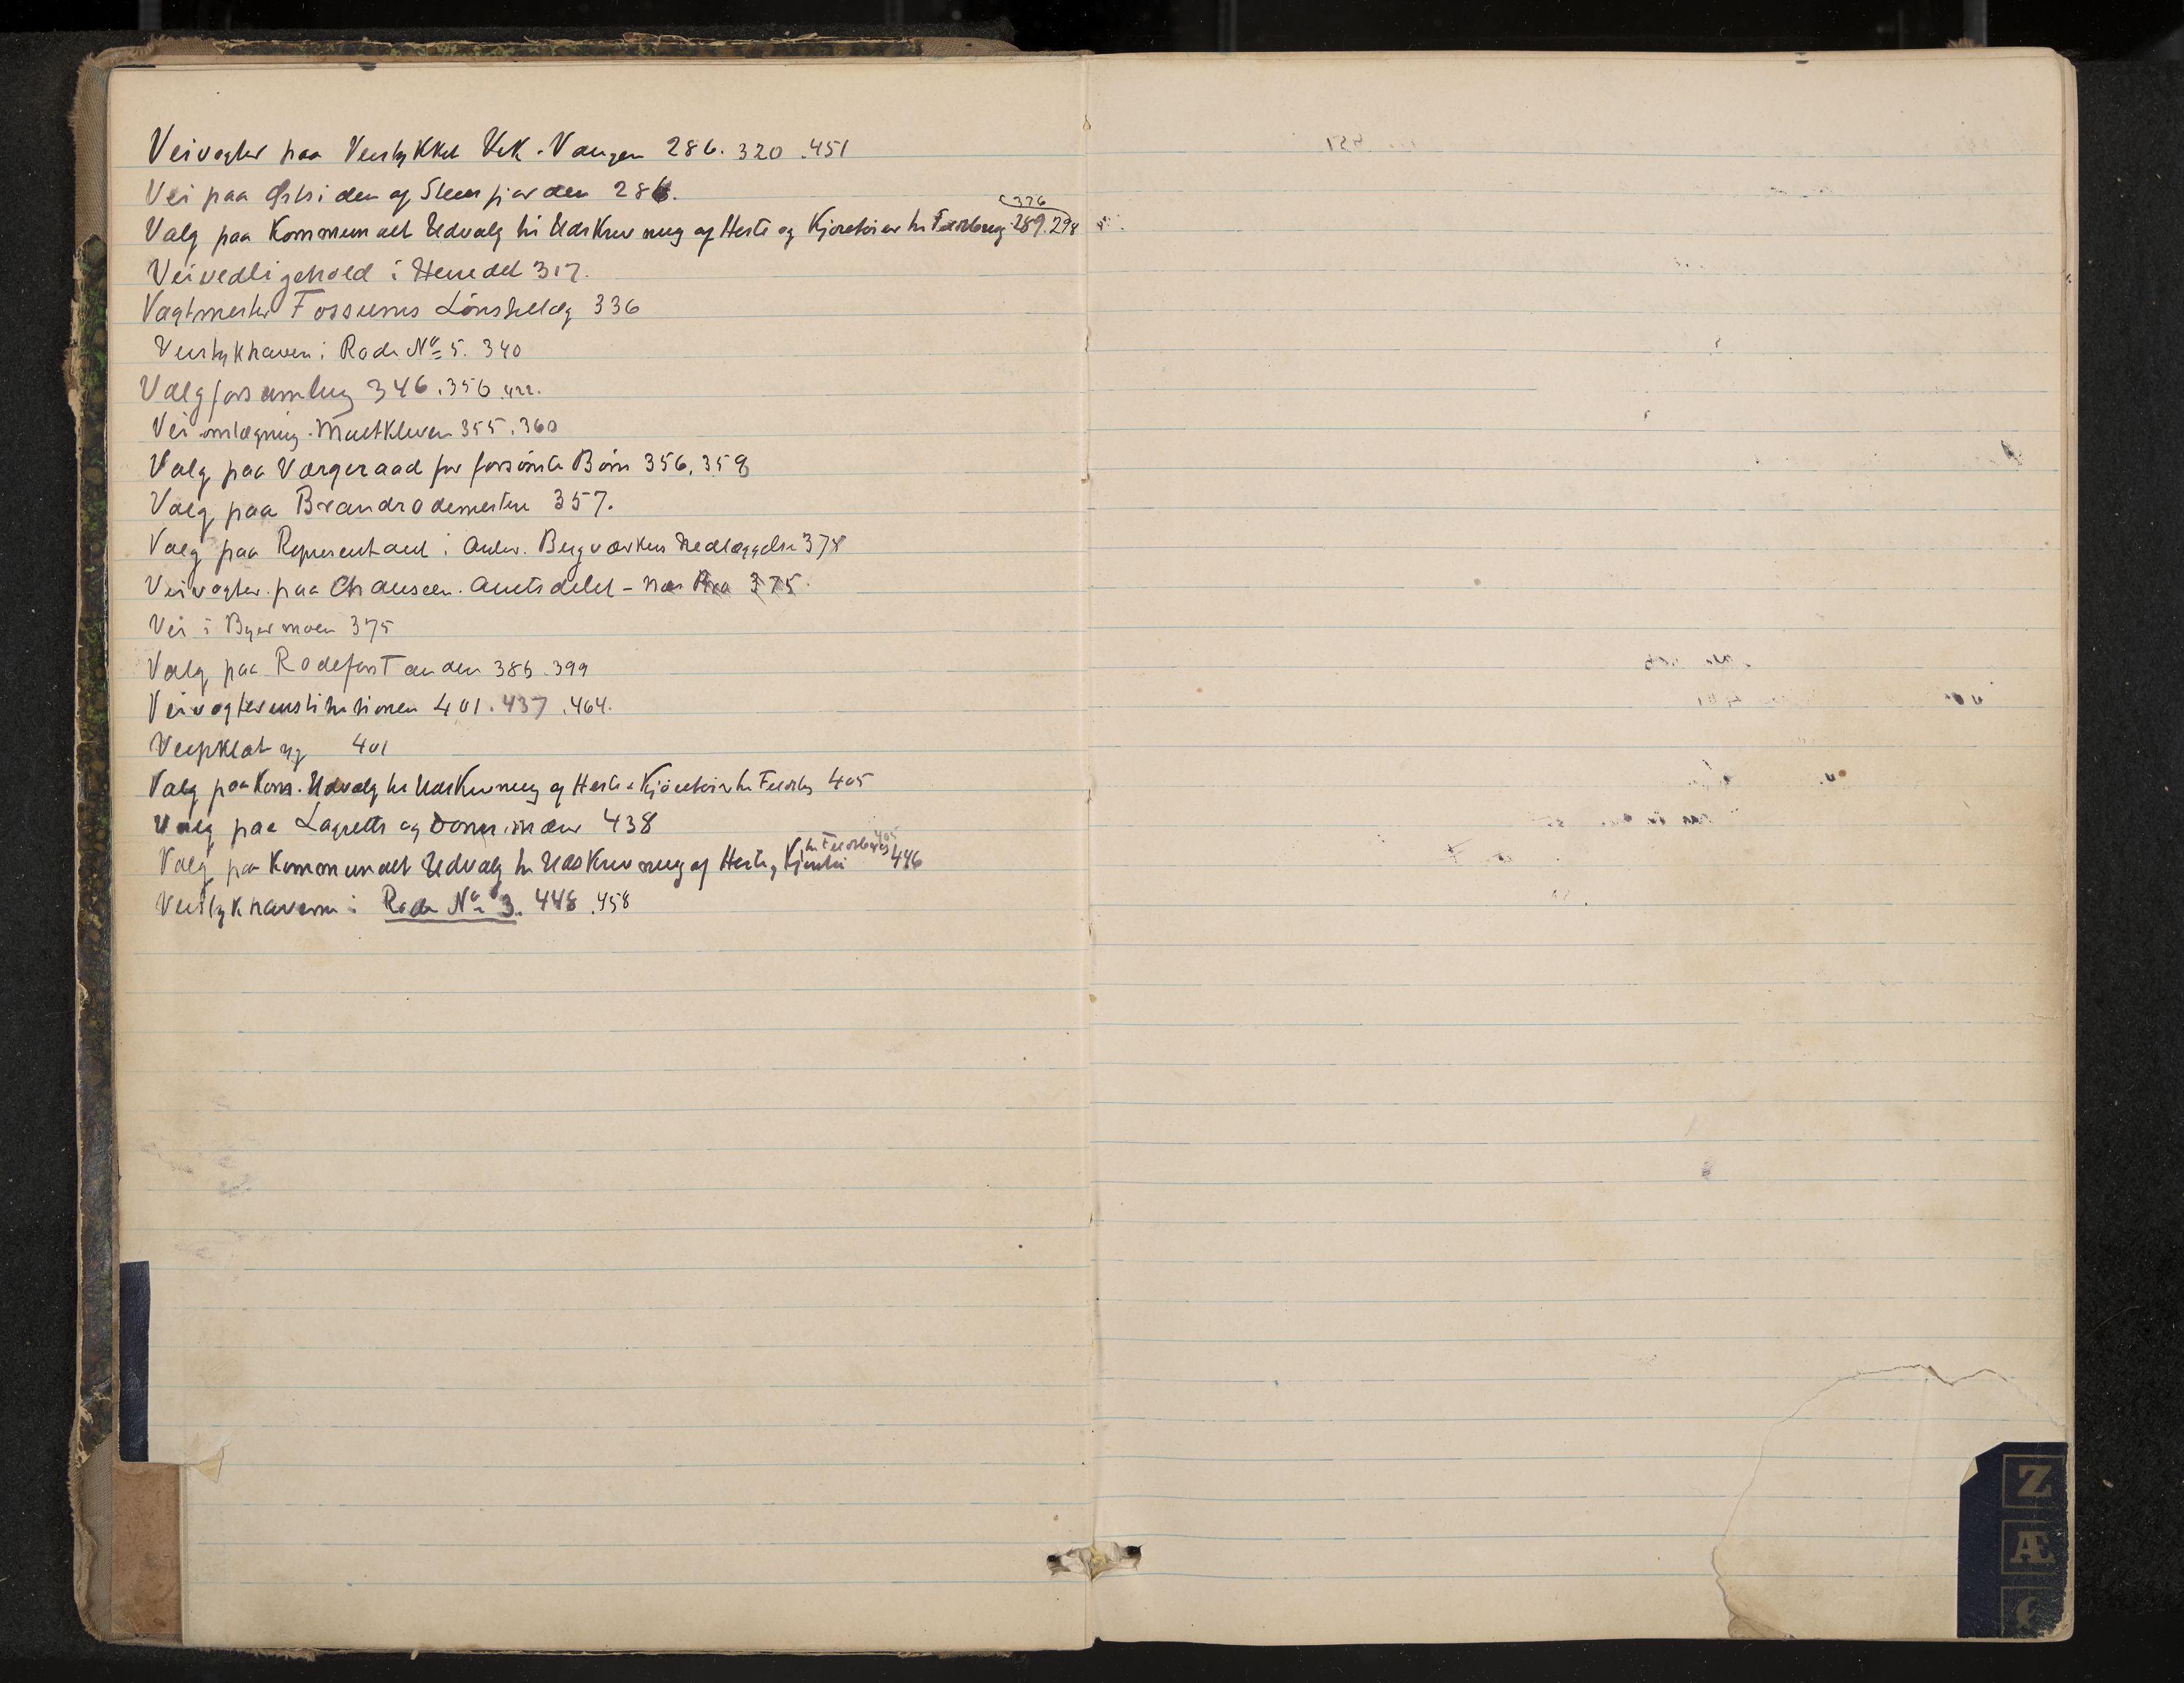 Veivogter paa Veistykket Vik-Vangen 286. 320 .451
Vei paa Østsiden af Steensfjorden 286.
Valg paa Kommunalt Udvalg til Udskrivning af Heste og Kjøretøier til Feltbrug 289.298
326
Veivedligehold i Herredet 317.
Vagtmester Fossums Lönstillæg 336
Veistykhaven i Rode No 5. 340
Valgforsamling 346.356.422.
Veiomlægning. Mælkleven 355.360
Valg paa Værgeraad for forsömte Börn 356, 359
Valg paa Brandrodemestere 357.
Valg paa Representant i Anl. Bergværkers Nedlæggelse 378
Veivogter paa Chauseen. Amtsdelet - 375.
Vei i Byermoen 375
Valg paa Rodeforstanden 386.399
Veivogterinstitutionen 401.437.464.
401
Valg paa Kom. Udvalg til Udskrivning af Heste & Kjöretöier til Feltbr 405
Valg paa Lagretts og Domsmænd 438
til Feltbrug 405
Valg paa Kommunalt Udvalg til Udskrivning af Heste, Kjöretöi 446
Veistykhaverne i Rode No 3. 448 .458
Z
Æ